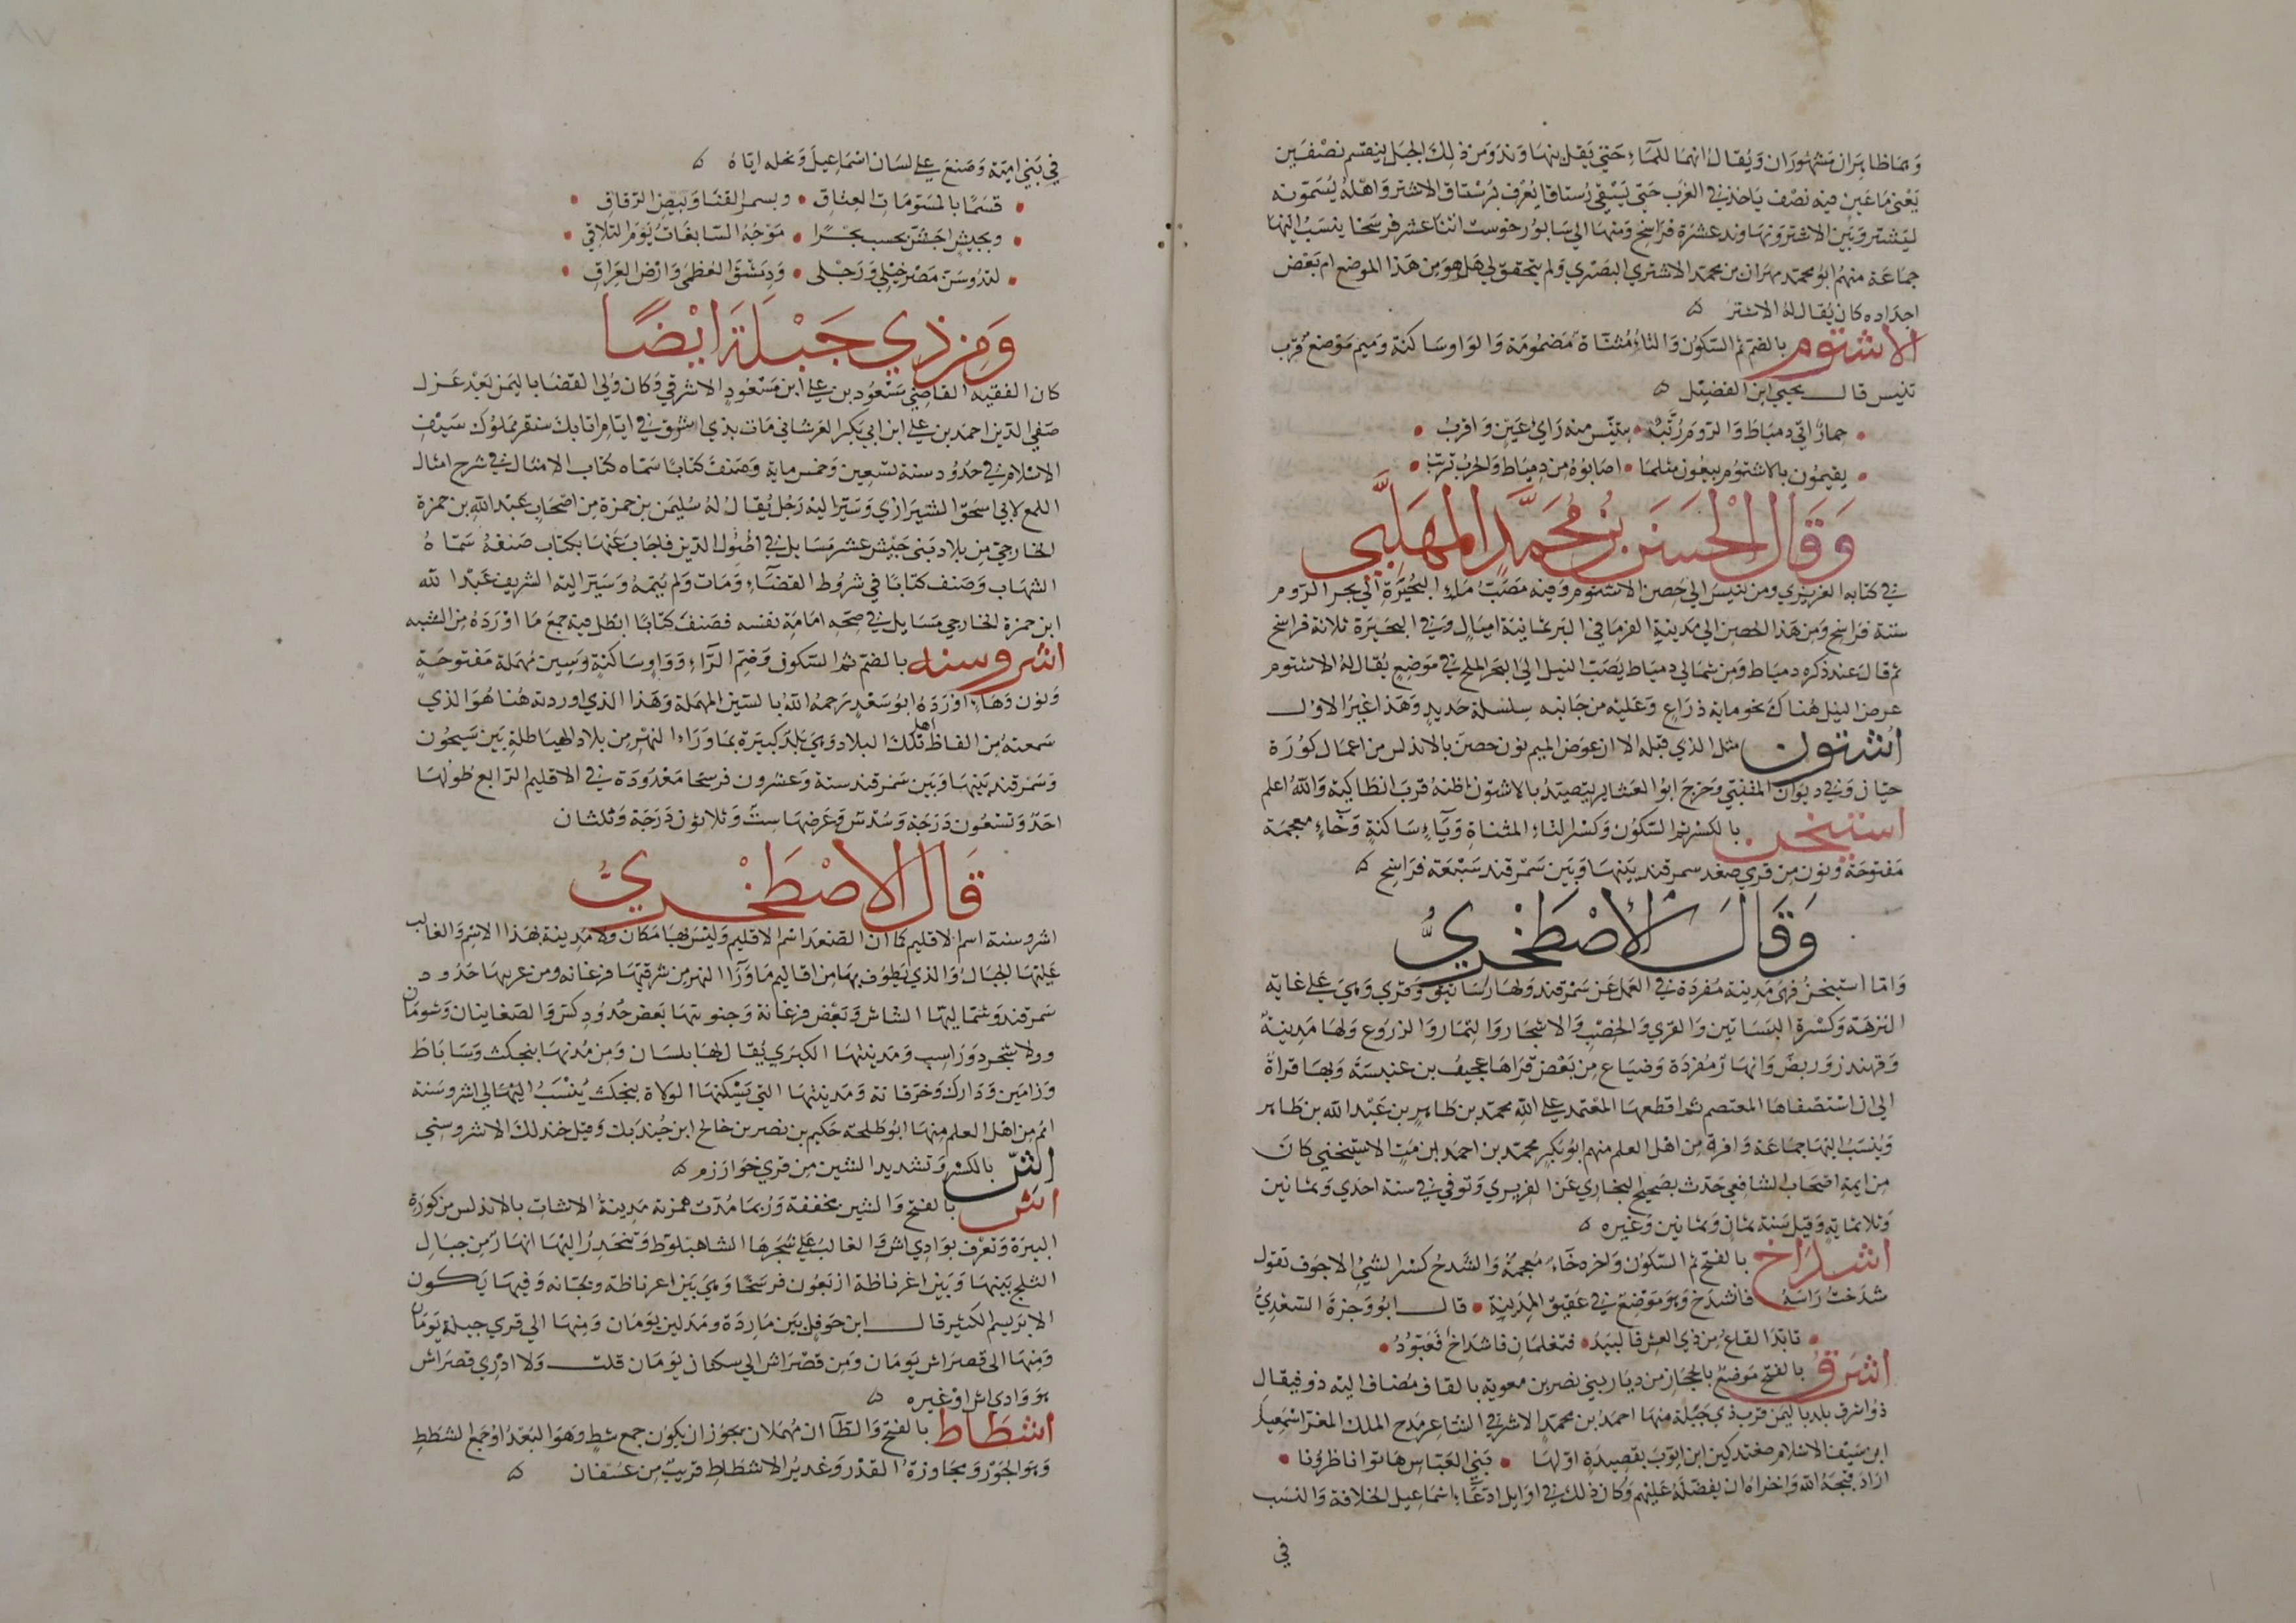 وهما ظاهران مشهوران ويقال انهما للماء حتي يقلبنها وند ومن ذلك الجبل ينقسم نصفين
يعني ماء عين فيه نصف ياخذ في الغرب حتي يسقي رستاقا يعرف برستاق الاشتر واهله يسمونه
ليشتر وبين الاشتر ونهاوند عشرة فراسخ ومنها الي سابور خوست اثنا عشر فرسخا ينسب اليها
جماعة منهم ابو محمد مهران بن محمد الاشتري البصري ولم يتحقق لي هل هو من هذا الموضع ام بعض
اجداده كان يقال له الاشتر
الاشتوم بالضم ثم السكون والتاء مثناة مضمومة والواو ساكنة وميم موضع قرب
تنيس قال يحيي ابن الفضيل
حمار اتي دمياط والروم رتب • بتنيس منه راي عين واقرب
يقيمون بالاشتوم يبغون مثلما • اصابوه من دمياط والحرب ترتب
وقال الحسن بن محمد المهلبي
في كتابه العزيزي ومن تنيس الي حصن الاشتوم وفيه مصب ماء البحيرة الي بحر الروم
ستة فراسخ ومن هذا الحصن الي مدينة الفرما في البر ثمانية اميال وفي البحيرة ثلاثة فراسخ
ثم قال عند ذكره دمياط ومن شمالي دمياط يصب النيل الي البحر الملح في موضع يقال له الاشتوم
عرض النيل هناك نحو ماية ذراع وعليه من جانبه سلسلة حديد وهذا غير الاول
اشتون مثل الذي قبله الا ان عوض الميم نون حصن بالاندلس من اعمال كورة
جيان وفي ديوان المتنبي وخرج ابو العشاير يتصيد بالاشتون اظنه قرب انطاكية والله اعلم
اشتيخن بالكسر ثم السكون وكسر التاء المثناة وياء ساكنة وخاء معجمة
مفتوحة ونون من قري صغد سمرقند بينها وبين سمرقند سبعة فراسخ
وقال الاصطخري
واما اشتيخن فهي مدينة مفردة في العمل عن سمرقند ولها رساتيق وقري وهي علي غاية
النزهة وكثرة البساتين والقري والخصب والاشجار والثمار والزروع ولها مدينة
وقهندز وربض وانهار مفردة وضياع من بعض قراها عجيف بن عنبسة وبها قراه
الي ان استصفاها المعتصم ثم اقطعها المعتمد علي الله محمد بن طاهر بن عبد الله بن طاهر
وينسب اليها جماعة وافرة من اهل العلم منهم ابو بكر محمد بن احمد ابن مت الاشتيخني كان
من ايمة اصحاب الشافعي حدث بصحيح البخاري عن الفربري وتوفي في سنة احدي وثمانين
وثلاثماية وقيل سنة ثمان وثمانين وغيره
اشداخ بالفتح ثم السكون واخره خاء معجمة والشدخ كسر الشئ الاجوف تقول
شدخت راسه فانشدخ وهو موضع في عقيق المدينة • قال ابو وجزة السعدي
تابد القاع من ذي العش فالبيد • فتغلمان فاشداخ فعبود
اشرق بالفتح موضع بالحجاز من ديار بني نصر بن معوية بالقاف مضاف اليه ذو فيقال
ذو اشرق بلد باليمن قرب ذي جبلة منها احمد بن محمد الاشرقي الشاعر مدح الملك المعز اسمعيل
ابن سيف الاسلام طغتدكين ابن ايوب بقصيدة اولها • بني العباس هاتوا ناظرونا •
اراد قبحه الله واخزاه ان يفضله عليهم وكان ذلك في اوايل ادعاء اسماعيل الخلافة والنسب
في
في بني امية وصنع علي لسان اسماعيل ونحله اياه
قسما بالمسومات العتاق • وبسمر القنا وبيض الرقاق
وبجيش اجش يحسب بحرا • موجه السابغات يوم التلاقي
لتدوسن مصر خيلي ورجلي • ودمشق العظمي وارض العراق
ومن ذي جبلة ايضا
كان الفقيه القاضي مسعود بن علي ابن مسعود الاشرقي وكان ولي القضا باليمن بعد عزل
صفي الدين احمد بن علي ابن ابي بكر العرشاني مات بذي اشرق في ايام اتابك سنقر مملوك سيف
الاسلام في حدود سنة تسعين وخمس ماية وصنف كتابا سماه كتاب الامثال في شرح امثال
اللمع لابي اسحق الشيرازي وسير اليه رجل يقال له سليمن بن حمزة من اصحاب عبد الله بن حمزة
الخارجي من بلاد بني حبيش عشر مسايل في اصول الدين فاجاب عنها بكتاب صنفه سماه
الشهاب وصنف كتابا في شروط القضاء ومات ولم يتمه وسير اليه الشريف عبد الله
ابن حمزة الخارجي مسايل في صحه امامة نفسه فصنف كتابا ابطل فيه جميع ما اورده من الشبه
اشروسنه بالضم ثم السكون وضم الراء وواو ساكنة وسين مهملة مفتوحة
ونون وهاء اورده ابو سعد رحمه الله بالسين المهملة وهذا الذي اوردته هنا هو الذي
سمعته من الفاظ اهل تلك البلاد وهي بلدة كبيرة بما وراء النهر من بلاد الهياطلة بين سيحون
وسمرقند بينها وبين سمرقند ستة وعشرون فرسخا معدودة في الاقليم الرابع طولها
احد وتسعون درجة وسدس وعرضها ست وثلاثون درجة وثلثان
قال الاصطخري
اشروسنة اسم الاقليم كما ان الصغد اسم الاقليم وليس بها مكان ولا مدينة بهذا الاسم والغالب
عليها الجبال والذي يطوف بها من اقاليم ما وراء النهر من شرقيها فرغانه ومن غربها حدود
سمرقند وشماليها الشاش وبعض فرغانة وجنوبها بعض حدود كش والصغانيان وشومان
وولاشجرد وراسب ومدينتها الكبري يقال لها بلسان ومن مدنها بنجكث وساباط
وزامين وديزك وخرقانة ومدينتها التي يسكنها الولاة بنجكث ينسب اليها الي اشروسنة
امم من اهل العلم منها ابو طلحة حكيم بن نصر بن خالج ابن جندبك وقيل جندلك الاشروسني
اش بالكسر وتشديد الشين من قري خوارزم
اش بالفتح والشين مخففة وربما مدت همزته مدينة الاشات بالاندلس من كورة
البيرة وتعرف بوادي اش والغالب علي شجرها الشاهبلوط وتنحدر اليها انهار من جبال
الثلج بينها وبين اغرناطة اربعون فرسخا وهي بين اغرناطة وبجانه وفيها يكون
الابريسم الكثير قال ابن حوقل بين ماردة ومدلين يومان ومنها الي قري جبلة يومان
ومنها الي قصر اش يومان ومن قصر اش الي سكنان يومان قلت ولا ادري قصر اش
هو وادي اش او غيره
اشطاط بالفتح والطاآن مهملان يجوز ان يكون جمع شط وهو البعد او جمع الشطط
وهو الجور ومجاوزة القدر وغدير الاشطاط قريب من عسفان